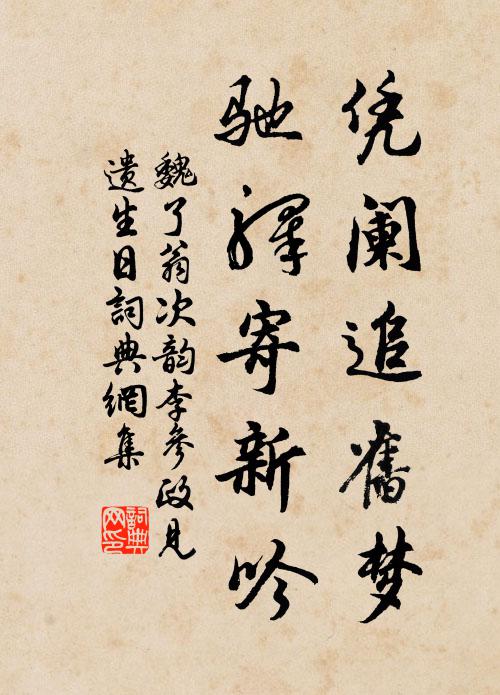 凭阑追旧梦
驰驿寄新吟
魏了翁次韵李参政见
遗生日詞典網集
詞典
网印